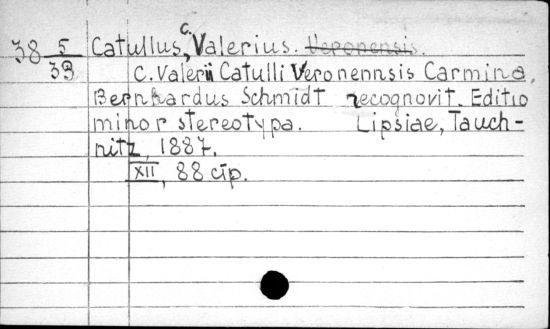 38 5/33 Catullus, C. Valerius. Veronensis.
C. Valerii Catulli Veronennsis Carmina.
Bernhardus Schmidt recognovit. Editio
minor stereotypa. Lipsiae, Tauch-
nitz, 1887.
XII, 88 стр.